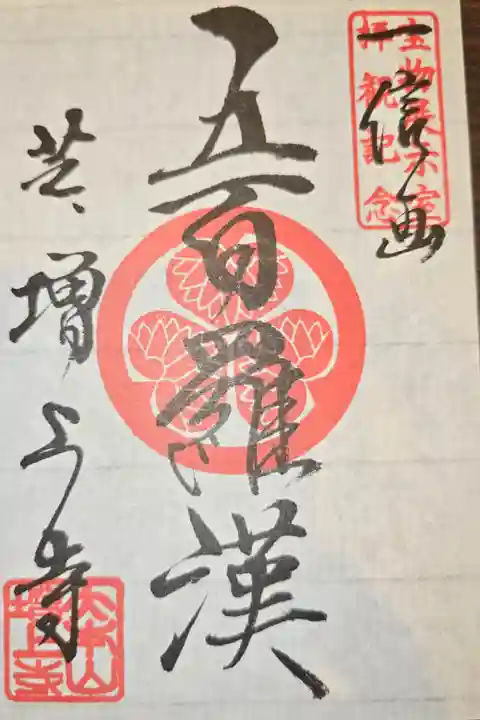 宝物展示室
拝観記念
一信画
五百羅漢
芝、増上寺
大本山
増上寺